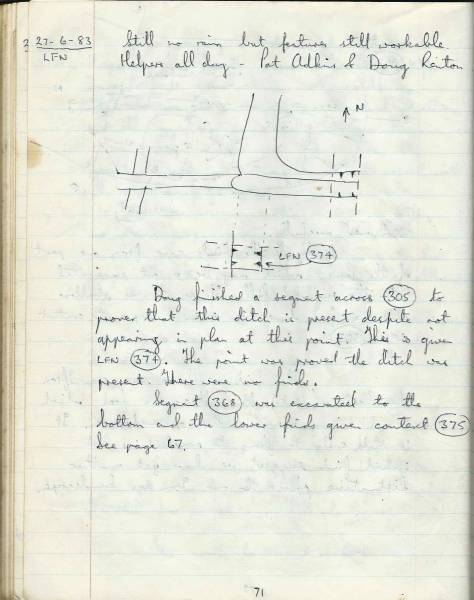 27-6-83 Still no rain but features still workable
LFN Helpers all day - Pat Adkins & Doug Renton
N
LFN 374
Doug finished a segment across 305 to
prove that this ditch is present despite not
appearing in plan at this point. This is given
LFN 374. The point was proved the ditch was
present. There were no finds.
Segment 368 was excavated to the
bottom and the lower finds given context 375
See page 67.
71